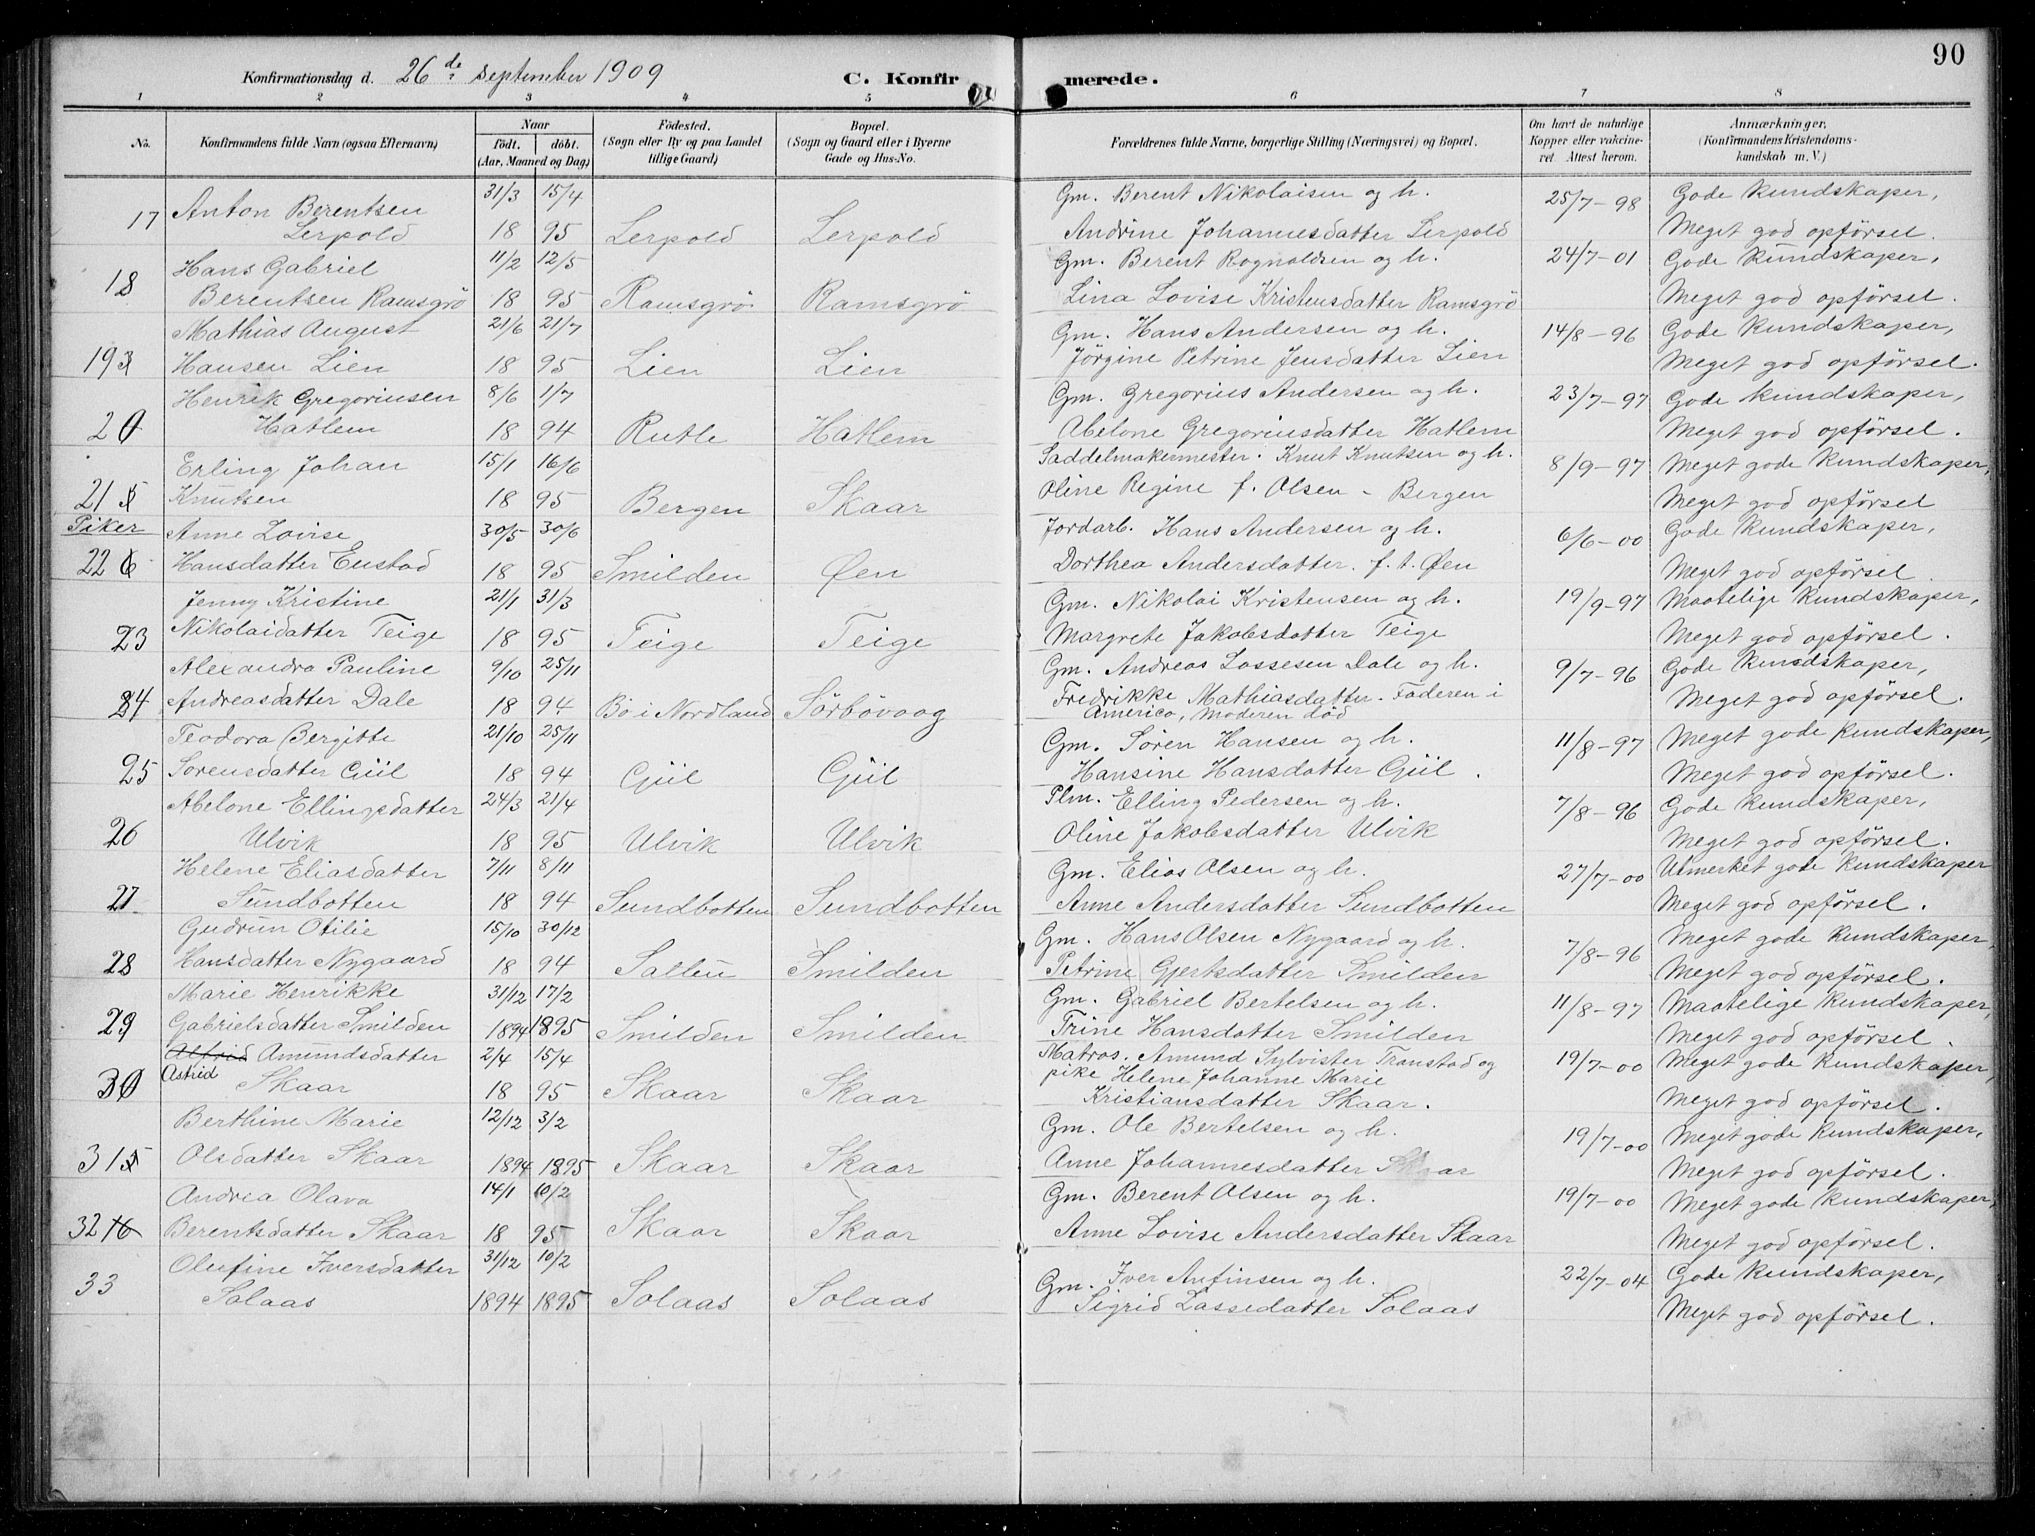 90
Konfirmationsdag d. 26de September 1909 C. Konfirmerede.
1 2 3 4 5 6 7 8
No. Konfirmandens fulde Navn (ogsaa Efternavn) Naar født. døbt. (Aar, Maaned og Dag) Fødested. (Sogn eller By og paa Landet tillige Gaard) Bopæl. (Sogn og Gaard eller i Byerne Gade og Hus-No. Forældrenes fulde Navne, borgerlige Stilling (Næringsvei) og Bopæl. Om havt de naturlige Kopper eller vakcineret. Attest herom. Anmærkninger, (Konfirmandens Kristendomskundskab m. V.)
31/3 15/4 Gm. Berent Nikolaisen og h. 25/7-98 Gode kundskaper,
17 Anton Berentsen Lerpold 18 95 Lerpold Lerpold Andrine Johannesdatter Lerpold Meget god opførsel.
Hans Gabriel 11/2 12/5 Gm. Berent Rognaldsen og h. 24/7-01 Gode Kundskaper,
18 Berentsen Ramsgrö 18 95 Ramsgrö Ramsgrö Lina Lovise Kristensdatter Ramsgrö Meget god opførsel.
Mathias August 21/6 21/7 Gm. Hans Andersen og h. 14/8-96 Gode Kundskaper,
19 Hansen Lien 18 95 Lien Lien Jörgine Petrine Jensdatter Lien Meget god opførsel.
Henrik Gregoriusen 8/6 1/7 Gm. Gregorius Andersen og h. 23/7-97 Gode kundskaper,
20 Hatlem 18 94 Rutle Hatlem Abelone Gregoriusdatter Hatlem Meget god opførsel.
Erling Johan 15/1 16/6 Saddelmakermester. Knut Knutsen og h. 8/9-97 Meget gode Kundskaper,
21 Knutsen 18 95 Bergen Skaar Oline Regine f. Olsen - Bergen Meget god opførsel
Piker Anne Lovise 30/5 30/6 Jordarb. Hans Andersen og h. 6/6-00 Gode Kundskaper,
22 Hansdatter Enstad 18 95 Smilden Øen Dorthea Andersdatter. f. t. Øen Meget god opførsel.
Jenny Kristine 21/1 31/3 Gm. Nikolai Kristensen og h. 19/9-97 Maatelige Kundskaper,
23 Nikolaidatter Teige 18 95 Teige Teige Margrete Jakobsdatter Teige Meget god opførsel.
Alexandra Pauline 9/10 25/11 Gm. Andreas Lassesen Dale og h. 9/7-96 Gode Kundskaper,
24 Andreasdatter Dale 18 94 Bø i Nordland Sörbövaag Fredrikke Mathiasdatter. Faderen i America, Moderen död Meget god opførsel.
Teodora Bergitte 21/10 25/11 Gm. Søren Hansen og h. 11/8-97 Meget gode kundskaper,
25 Sørensdatter Gjiil 18 94 Gjiil Gjiil Hansine Hansdatter Gjiil. Meget god opførsel.
Abelone Ellingsdatter 24/3 21/4 Plm. Elling Pedersen og h. 7/8-96 Gode Kundskaper,
26 Ulvik 18 95 Ulvik Ulvik Oline Jakobsdatter Ulvik Meget god opførsel.
Helene Eliasdatter 7/11 8/11 Gm. Elias Olsen og h. 27/7-00 Utmerket gode Kundskaper
27 Sundbotten 18 94 Sundbotten Sundbotten Anne Andersdatter Sundbotten Meget god opførsel.
Gudrun Otilie 15/10 30/12 Gm. Hans Olsen Nygaard og h. 7/8-96 Meget gode Kundskaper,
28 Hansdatter Nygaard 18 94 Smilden Petrine Gjertsdatter Smilden Meget god opførsel.
Marie Henrikke 31/12 17/2 Gm. Gabriel Bertelsen og h. 11/8-97 Maatelige Kundskaper,
29 Gabrielsdatter Smilden 1894 1895 Smilden Smilden Trine Hansdatter Smilden Meget god opførsel.
Alfrid Amundsdatter 2/4 15/4 Matros. Amund Sylvister Transtad og 19/7-00 Meget gode Kundskaper,
30 Astrid Skaar 18 95 Skaar Skaar pike Helene Johanne Marie Kristiansdatter Skaar. Meget god opførsel.
Berthine Marie 12/12 3/2 Gm. Ole Bertelsen og h. 19/7-00 Meget gode Kundskaper,
31 Olsdatter Skaar 1894 1895 Skaar Skaar Anne Johannesdatter Skaar Meget god opførsel.
Andrea Olava 14/1 10/2 Gm. Berent Olsen og h. 19/7-00 Meget gode Kundskaper,
32 Berentsdatter Skaar 18 95 Skaar Skaar Anne Lovise Andersdatter Skaar Meget god opførsel.
Olufine Iversdatter 31/12 10/2 Gm. Iver Anfinsen og h. 22/7-04 Gode Kundskaper,
33 Solaas 1894 1895 Solaas Solaas Sigrid Lassedatter Solaas Meget god opførsel.